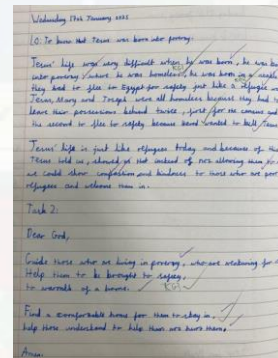 Wednesday 17th January 2025
L.O: To know that Jesus was born into poverty.
Jesus' life was very difficult when he was born, he was born
into poverty where he was homeless, he was born in a
they had to flee to Egypt for safety just like a refugee
Jesus, Mary and Joseph were all homeless because they had to
leave their possessions behind twice, just for the census and
the second to flee to safety because Herod wanted to kill
Jesus' life is just like refugees today and because of
Jesus told us, showed us that instead of not allowing them
we could show compassion and kindness to those who are poor
refugees and welcome them in.
Task 2:
Dear God,
Guide those who are living in poverty, who are
Help them to be brought to safety,
to warmth of a home. KS1
Find a comfortable home for them to stay in,
help those understand to help them not hurt them,
Amen.